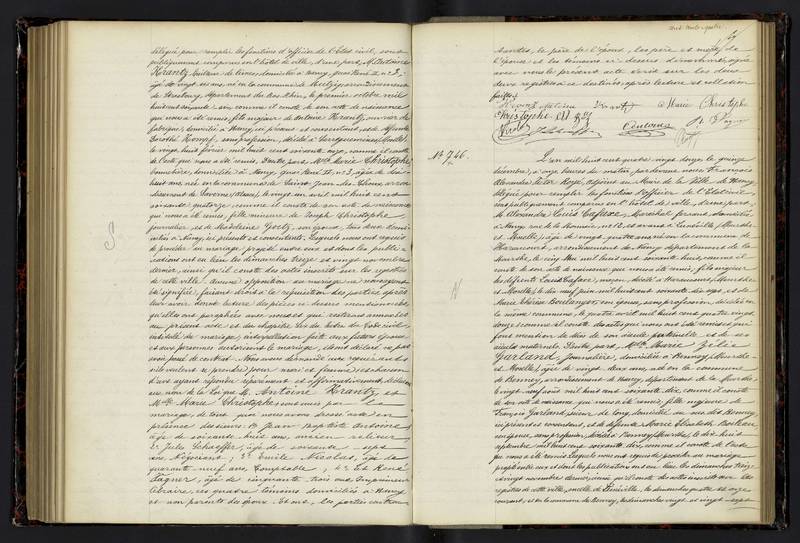 délégué pour remplir les fonctions d'officier de l'Etat civil, sont
publiquement comparus en l'hôtel de ville, d'une part, M. Antoine
Krantz, domicilié à Nancy, rue René II n° 3,
âgé de vingt
de Strasbourg, département du Bas-Rhin, le premier octobre mil
huit cent soixante six comme il conste de son acte de naissance
qui nous a été remis, fils majeur de Antoine Krantz
domicilié à Nancy, ici présent et consentant, et de
Kempf, sans profession, décédée à Sarreguemines (Moselle)
le vingt huit février mil huit cent soixante onze, comme il conste
de l'acte qui nous a été remis. D'autre part, Mlle Marie Christophe,
domiciliée à Nancy, rue René II n° 3, âgée de dix
huit ans, née en la commune de Saint Jean des Choux, arron
dissement de Saverne, le vingt un avril mil huit cent
soixante quatorze comme il conste de son acte de naissance
qui nous a été remis, fille mineure de Joseph Christophe,
journalier, et de Madeleine Goetz, son épouse, tous deux domi
ciliés à Nancy, ici présents et consentants. Lesquels nous ont requis
de procéder au mariage projeté entre eux et dont les publi
cations ont eu lieu les dimanches treize et vingt novembre
dernier, ainsi qu'il conste des actes inscrits sur les registres
de cette ville. Aucune opposition au mariage ne nous ayant
été signifiée, faisant droit à la réquisition des parties, après
leur avoir donné lecture des pièces ci dessus mentionnées,
qu'elles ont paraphées avec nous et qui resteront annexées
au présent acte et du chapitre six du titre du Code civil,
intitulé du mariage, interpellation faite aux futurs époux
et aux personnes autorisant le mariage, ils ont déclaré ne pas
avoir passé de contrat. Nous avons demandé aux requérants
s'ils veulent se prendre pour mari et femme; et chacun
d'eux ayant répondu séparément et affirmativement, déclarons
au nom de la loi que M. Antoine Krantz et
Mlle Marie Christophe sont unis par le
mariage, de tout quoi nous avons dressé acte en
présence des sieurs 1° Jean Baptiste Antoine,
âgé de soixante huit ans, ancien relieur
2° Jules Schaeffer, âgé de soixante sept
ans, Négociant, 3° Emile Nicolas, âgé de
quarante neuf ans, Comptable; 4° et René
Wagner, âgé de cinquante trois ans Imprimeur
libraire, ces quatre témoins domiciliés à Nancy
et non parents des époux. Et ont, les parties contrac
S
cent cent quatre
tantes, le père de l'époux, les père et mère de
l'épouse et les témoins ci dessus dénommés, signé
avec nous le présent acte écrit sur les deux
registres à ce destinés, après lecture et collation
faites.
Krantz Antoine Krantz Marie Christophe
Christophe
Nicolas J. Schaeffer Antoine R. Wagner
N° 746.
N
L'an mil huit cent quatre vingt douze le quinze
décembre, à onze heures du matin par devant nous François
Alexandre Victor Rozé, adjoint au Maire de la Ville de Nancy
délégué pour remplir les fonctions d'officier de l'Etat civil
sont publiquement comparus en l'hôtel de ville, d'une part,
M. Alexandre Louis Cafaxe, Maréchal ferrant, domicilié
à Nancy, rue de la Monnaie, n°
et Moselle, âgé de vingt quatre ans, né en la commune de
Haraucourt, arrondissement de Nancy, département de la
Meurthe, le cinq Mai mil huit cent soixante huit, comme il
conste de son acte de naissance qui nous a été remis, fils majeur
de défunts Louis Cafaxe, maçon, décédé à Haraucourt, Meurthe
et Moselle, le dix neuf juin mil huit cent soixante dix sept, et de
Marie Thérèse Boulanger, son épouse, sans profession, décédée en
la même commune, le quatre avril mil huit cent quatre vingt
douze comme il conste des actes qui nous ont été remis et qui
font mention du décès de ses aïeuls paternels et de ses
aïeuls maternels. D'autre part, Mlle Marie Zélie
Garland, Journalière, domiciliée à Benney, Meurthe
et Moselle, âgée de vingt deux ans, née en la commune
de Benney, arrondissement de Nancy, département de la Meurthe,
le vingt neuf août mil huit cent soixante dix, comme il conste
de son acte de naissance qui nous a été remis, fille majeure de
François Garland, scieur de long, domicilié au susdit Benney,
ici présent et consentant, et de défunte Marie Elisabeth Boileau
son épouse, sans profession, décédée à Benney, Meurthe, le dix huit
septembre mil huit cent soixante dix, comme il conste de l'acte
qui nous a été remis. Lesquels nous ont requis de procéder au mariage
projeté entre eux et dont les publications ont eu lieu les dimanches treize
et vingt novembre dernier, ainsi qu'il conste des actes inscrits sur les
registres de cette ville, de Lunéville, les dimanches quatre et onze
courant, et en la commune de Benney, les dimanches vingt et vingt sept